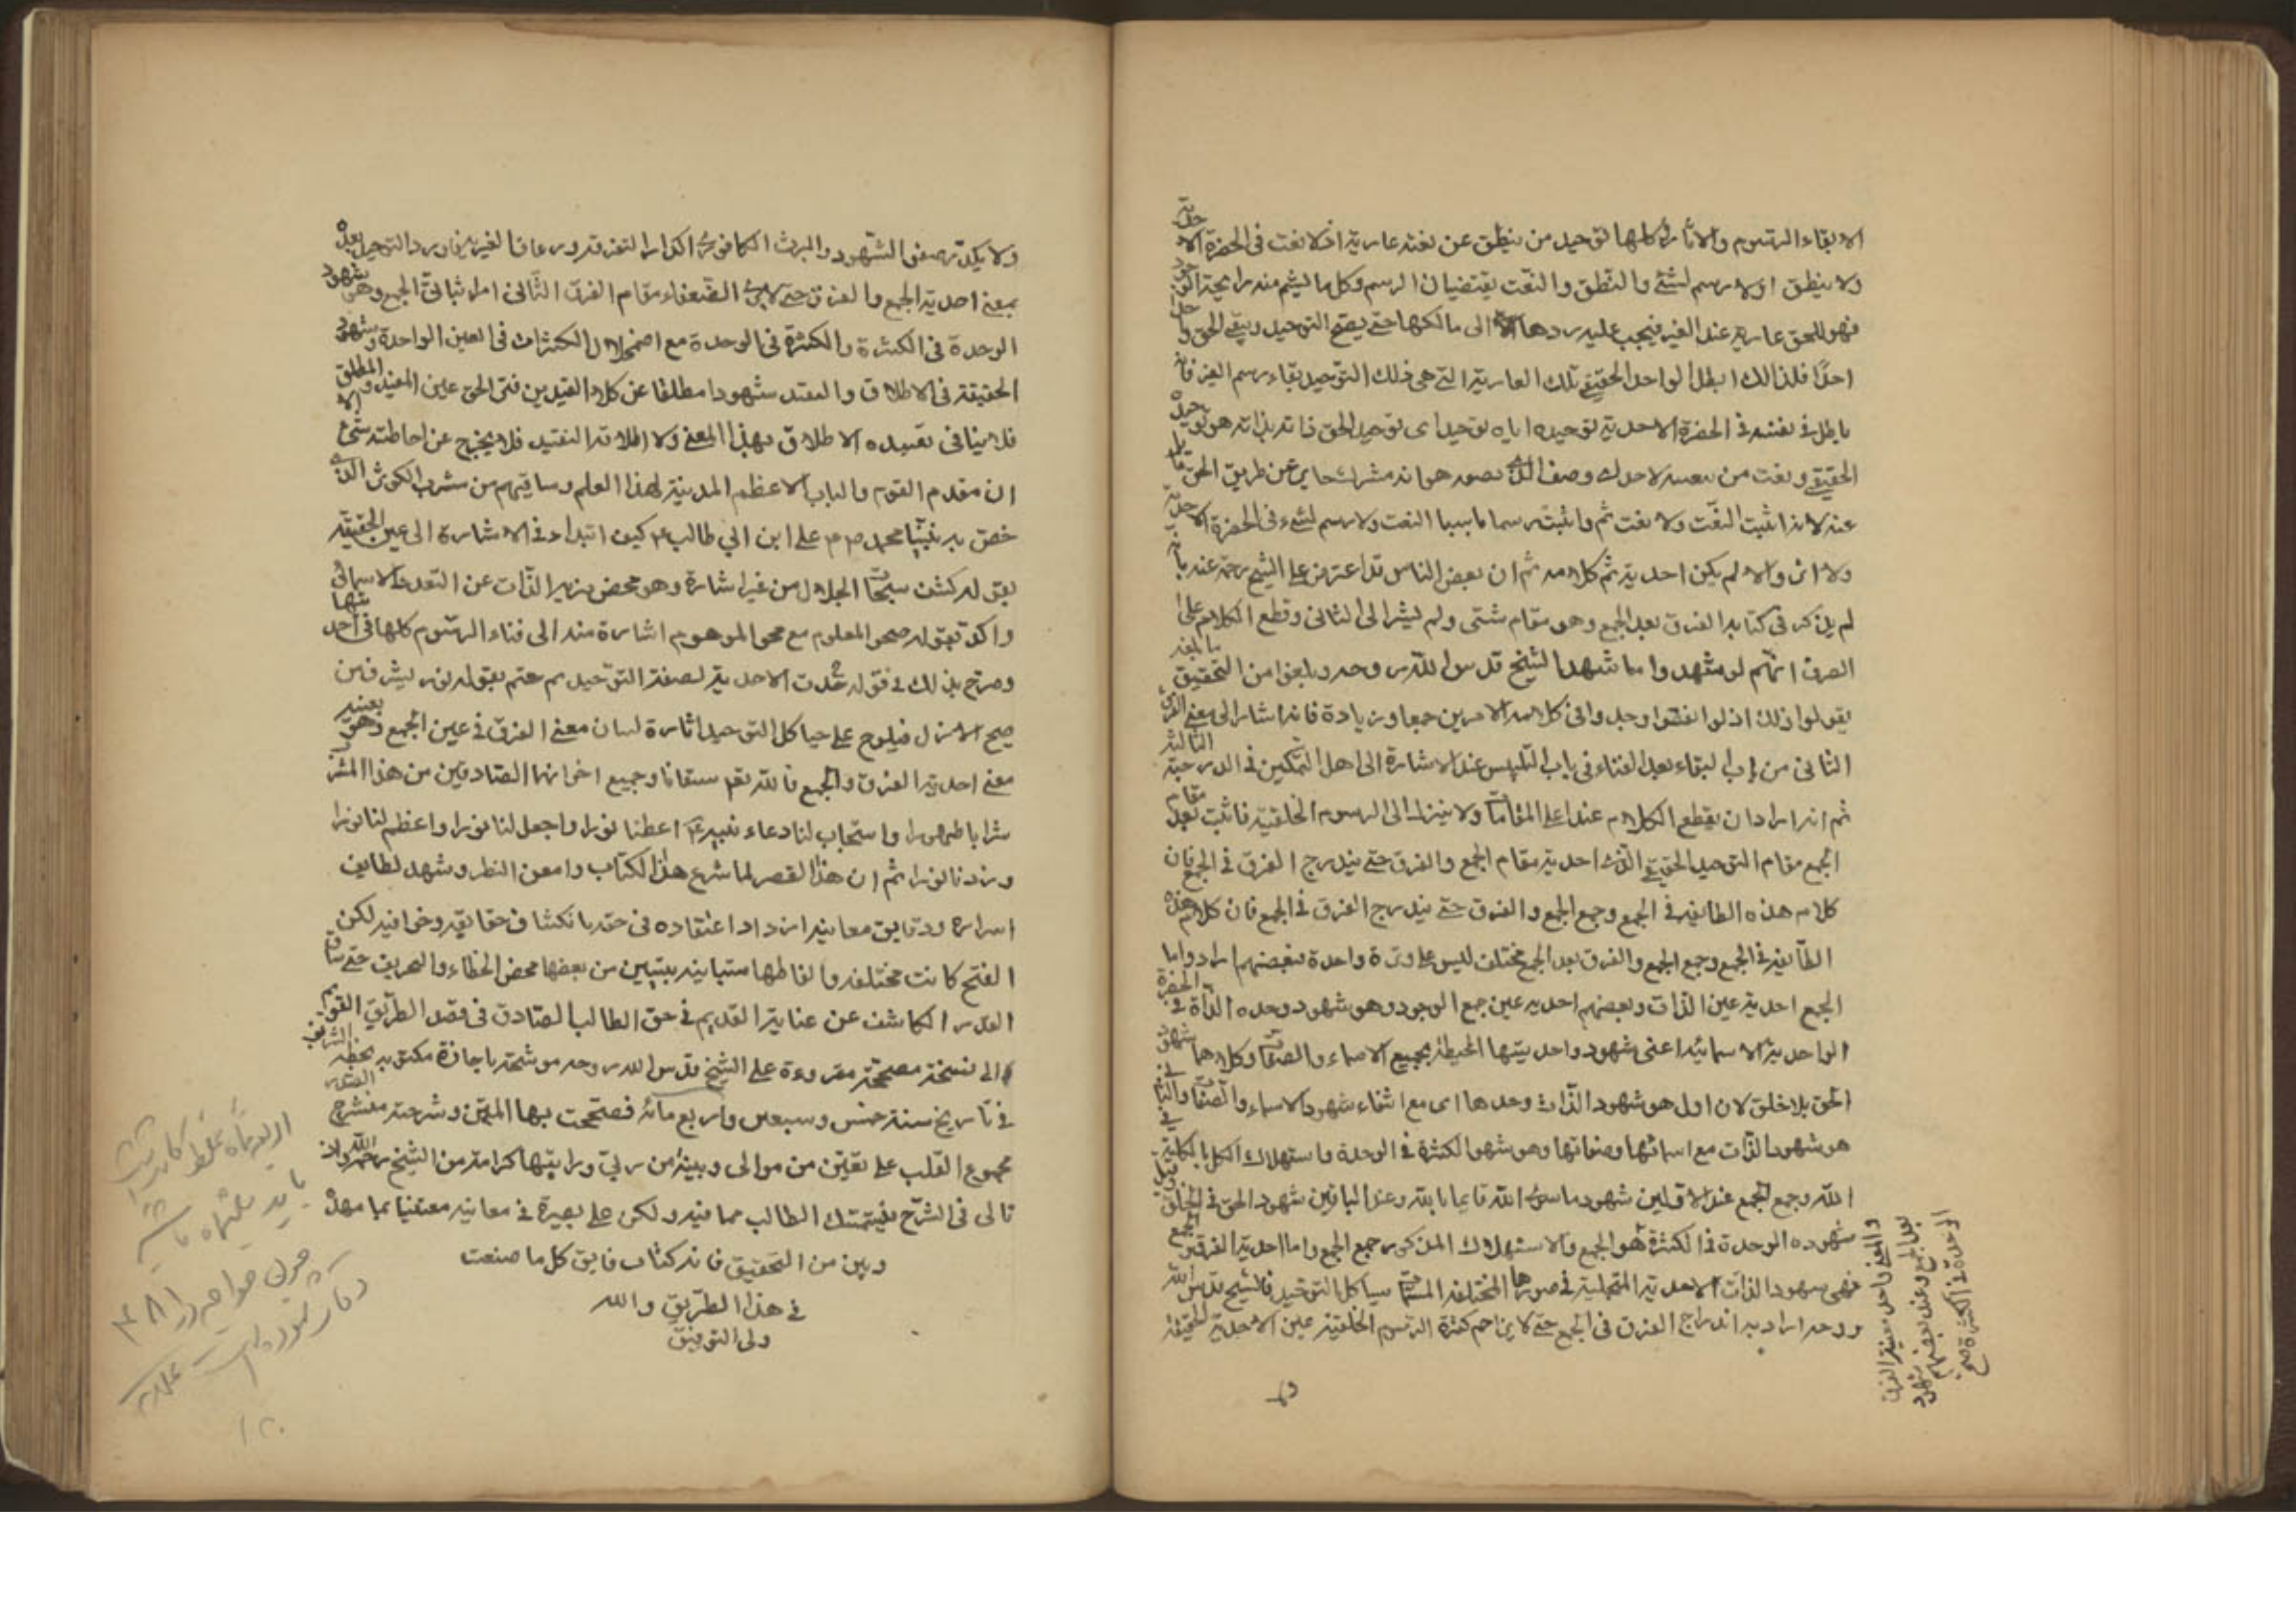 الا بقاء الرسوم والآثار وكلها توحيد من ينطق عن نعته عارية اذ لا نعت فى الحضرة الاحدية
ولا ينطق اولا رسم لشئ والنطق والنعت يقتضيان الرسم وكل ما يشم منه رايحة الوجود
فهو للحق عارية عند الغير فيجب عليه ردها الى مالكها حتى يصح التوحيد ويبقى الحق واحدا
احدا فلذالك ابطل الواحد الحقيقى تلك العارية التى هى ذلك التوحيد بقاء رسم الغير فانه
باطل فى نفسه فى الحضرة الاحدية توحيده اياه توحيد اى توحيد الحق ذاته بذاته هو توحيده
الحقيقى ونعت من ينعته لاحد اى وصف الذى يصفه هو انه مشرك حايد عن طريق الحق مايل
عنه لانه اثبت النعت ولا نعت ثم واثبت رسما باسبا النعت ولا رسم لشئ فى الحضرة الاحدية
ولا اثر والا لم يكن احدية ثم كلامه ثم ان بعض الناس قد اعترض على الشيخ رحمه عنه بانه
لم يذكر فى كتابه الفرق بعد الجمع وهو مقام شتى ولم يشر الى الثانى وقطع الكلام على
الصرف انهم لو شهدوا ما شهد الشيخ قدس الله روحه وبلغوا من التحقيق ما بلغه
يقولوا ذلك اذ لو انصفوا وجدوا فى كلامه الامرين جمعا وزيادة فانه اشار الى معنى الفرق
الثانى من باب البقاء بعد الفناء فى باب التلبيس عند الاشارة الى اهل التمكين فى الدرجة الثالثة
ثم انه اراد ان يقطع الكلام عند اعلى المقامات ولا ينزل الى الرسوم الخلقية فاثبت بعد مقام
الجمع مقام التوحيد الحقيقى الذى احدية مقام الجمع والفرق حتى يندرج الفرق فى الجمع فان
كلام هذه الطايفة فى الجمع وجمع الجمع والفرق حتى يندرج الفرق فى الجمع فان كلام هذه
الطائفة فى الجمع وجمع الجمع والفرق بعد الجمع مختلف ليس على وتيرة واحدة فبعضهم ارادوا بها
الجمع احدية عين الذات وبعضهم احدية عين جمع الوجود وهو شهود وحده الذات فى الحضرة
الواحدية الاسمائية اعنى شهود واحديتها المحيطة بجميع الاسماء والصفات وكلاهما شهود
الحق بلا خلق لان اول هو شهود الذات وحدها اى مع انتفاء شهود الاسماء والصفات والثانى
هو شهود الذات مع اسمائها وصفاتها وهو شهود الكثرة فى الوحدة واستهلاك الكل بالكلية فى
الله وجمع الجمع عند الاولين شهود ما سوى الله قايما بالله وعند الباقين شهود الحق فى الخلق
شهوده الوحدة فى الكثرة هو الجمع والاستهلاك المذكور جمع الجمع واما احدية الفرق والجمع
فهى شهود الذات الاحدية المتجلية فى صورها المختلفة المسماة هياكل التوحيد فالشيخ قدس الله
روحه اراد به اندراج الفرق فى الجمع حتى لا يزاحم كثرة الرسوم الخلقية عين الاحدية الحقيقة
بعد الجمع وعند بعضهم شهود
الوحدة فى الكثرة صح
ولا يكدر صفو الشهود والمرث الكافورى اكدار التفرقه ورعاف الغيرية فاورد التوحيد بعده
بمعنى احدية الجمع والفرق حتى لا يرى الضعفاء مقام الفرق الثانى امرا ثباتى الجمع وهو شهود
الوحدة فى الكثرة والكثرة فى الوحدة مع اضمحلال الكثرات فى العين الواحدة وشهود
الحقيقة فى الاطلاق والتقيد شهودا مطلقا عن كلا القيدين فترى الحق عين المقيد والمطلق
فلا ينافى تقييده الاطلاق بهذا المعنى ولا اطلاقه التقييد فلا يخرج عن احاطته شئ الا
ان مقدم القوم والباب الاعظم المدينة لهذا العلم وساقيهم من مشرب الكوثر الذى
خص به نبينا محمد ص م على ابن ابي طالب ع كيف ابتداء فى الاشارة الى عين الحقيقة
بقوله كشف سبحات الجلال من غير اشارة وهو محض تنزيه الذات عن التعدد الاسمائى
واكد بقوله صحو المعلوم مع محو الموهوم اشارة منه الى فناء الرسوم كلها فى احديتها
وصرح بذلك فى قوله جذب الاحدية لصفة التوحيد ثم ختم بقوله نور يشرق من
صبح الازل فيلوح على هياكل التوحيد اثاره لبيان معنى الفرق فى عين الجمع وهو بعينه
معنى احدية الفرق والجمع فالله تعم سقانا وجميع اخواننا الصادقين من هذا المشرب
شرابا طهورا واستجاب لنا دعاء نبيه ع اعطنا نورا واجعل لنا نورا واعظم لنا نورا
وزدنا نورا ثم ان هذا القصر لما شرع هذا الكتاب وامعن النظر وشهد لطايف
اسراره ودقايق معانيه ازداد اعتقاده فى حقه بانكشاف حقايقه وخوافيه لكن
الفتح كانت مختلفه والفاظها متباينه يتبين من بعضها محض الخطاء والتحريف حتى ساق
القدر الكاشف عن عناية القديم فى حق الطالب الصادق فى قصد الطريق القويم
الى نسخة مصححة مقروءة على الشيخ قدس الله روحه موشحة باجازة مكتوبه بخطه الشريف
فى تاريخ سنة خمس وسبعين واربع مائة فصححت بها المتن وشرحته منشرح الصدر
مجموع القلب على يقين من موالى وبينة من ربى ورايتها كرامة من الشيخ رحمه الله وان
تالى فى الشرح فليتمسك الطالب مما فيه ولكن على بصيرة فى معانيه معتنيا بما مهده
وبين من التحقيق فانه كتاب فايق كل ما صنعت
فى هذا الطريق والله
ولى التوفيق